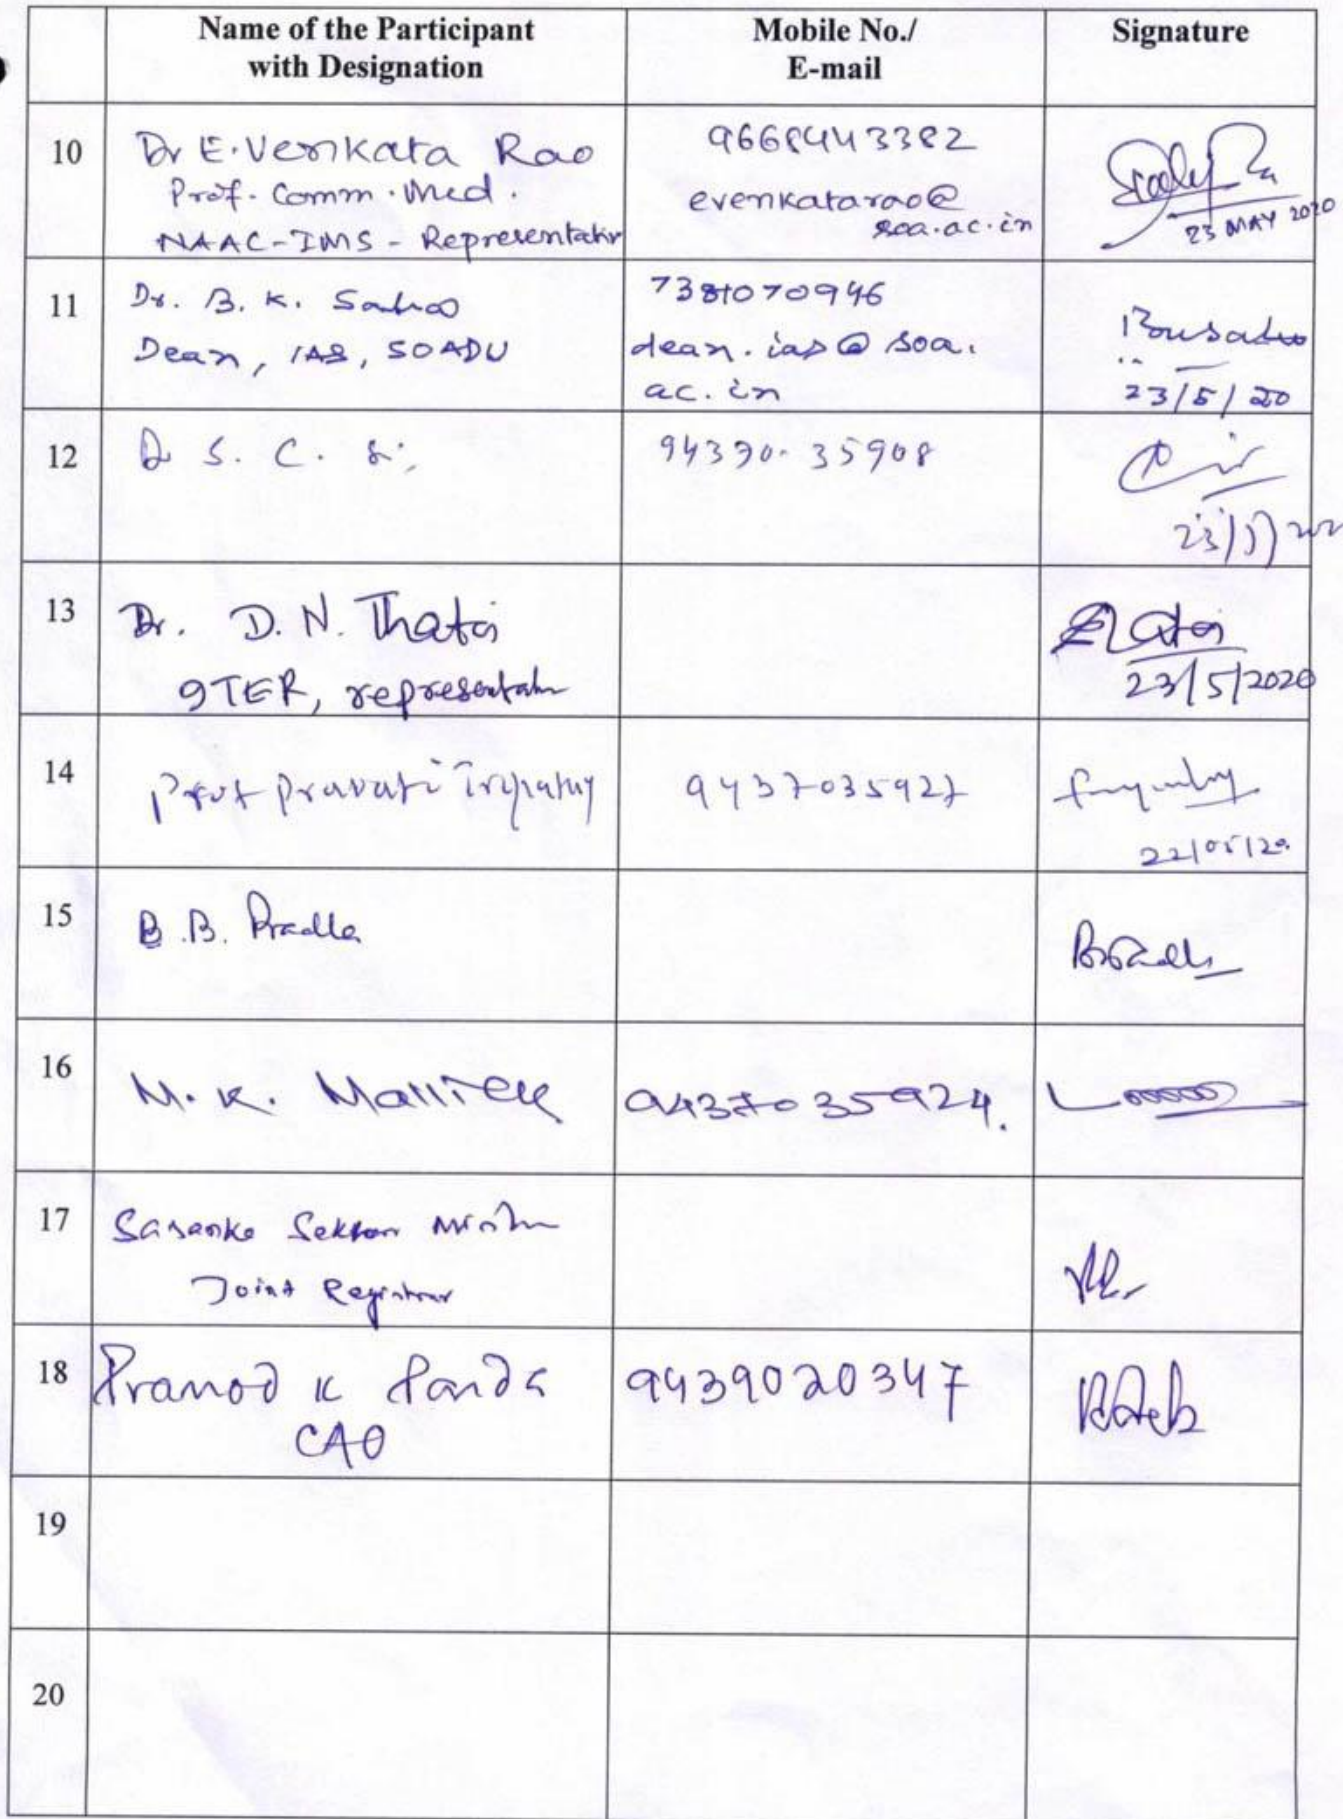 Name of the Participant
with Designation
Mobile No./
E-mail
Signature
10
Dr E. Venkata Rao
Prof. Comm. Med.
NAAC-IMS - Representativ
9668443382
evenkatarao@
soa.ac.in
23 MAY 2020
11
Dr. B. K. Sahoo
Dean, IAS, SOADU
7381070946
dean.ias@soa.
ac.in
23/5/20
12
S. C.
94370-35908
13
Dr. D. N. Thatoi
ITER, representativ
23/5/2020
14
Prof Pravati Tripathy
9437035927
22/05/20
15
B.B. Pradhan
16
M. K. Mallick
9437035924.
17
Sasanka Sekhar Mishra
Joint Registrar
18
Pramod K Panda
CAO
9439020347
19
20